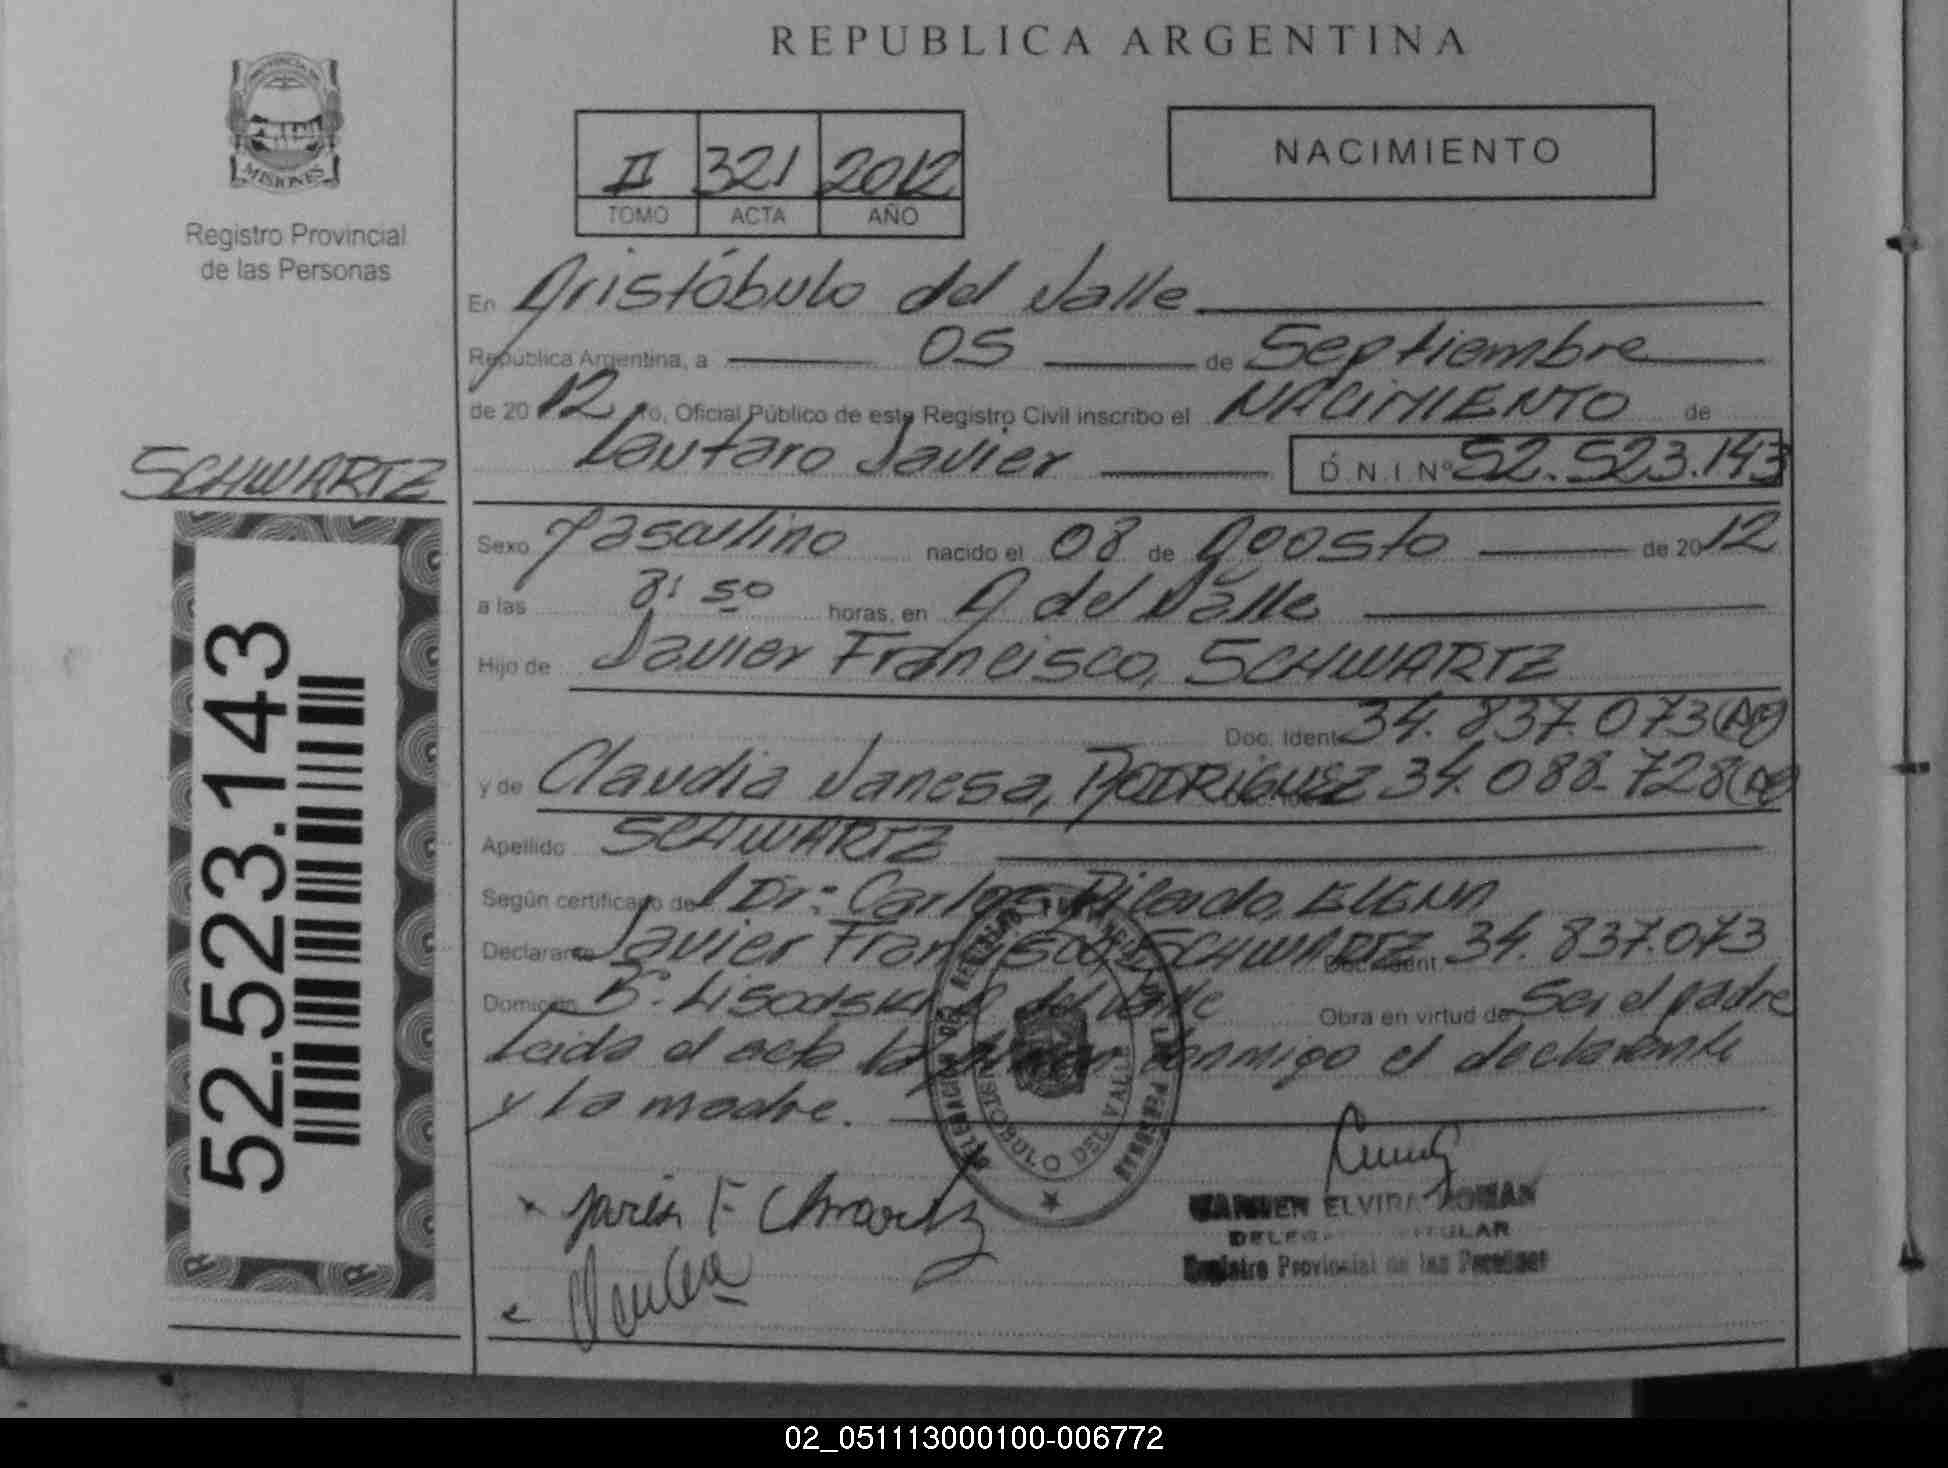 REPUBLICA ARGENTINA
PROVINCIA DE
MISIONES
Registro Provincial
de las Personas
II 321 2012
TOMO ACTA AÑO
NACIMIENTO
En Aristóbulo del Valle
República Argentina, a 05 de Septiembre
de 2012 Yo, Oficial Público de este Registro Civil inscribo el NACIMIENTO de
Lautaro Javier D.N.I.Nº 52.523.143
SCHWARTZ
52.523.143
Sexo Masculino nacido el 08 de Agosto de 2012
a las 8:50 horas, en A del Valle
Hijo de Javier Francisco, SCHWARTZ
Doc. Ident. 34.837.073
y de Claudia Vanesa, RODRIGUEZ 34.088.728
Apellido SCHWARTZ
Según certificado del Dr: Carlos Ricardo, ELENA
Declarante Javier Francisco, SCHWARTZ Doc. Ident. 34.837.073
Domicilio Bº. A del Valle Obra en virtud de Ser el padre
Leida el acta la firman conmigo el declarante
y la madre.
DELEGACION DEL REGISTRO PROVINCIAL DE LAS PERSONAS
ARISTOBULO DEL VALLE
Javier F Chwartz
CARMEN ELVIRA ROMAN
DELEGADA TITULAR
Registro Provincial de las Personas
02_051113000100-006772